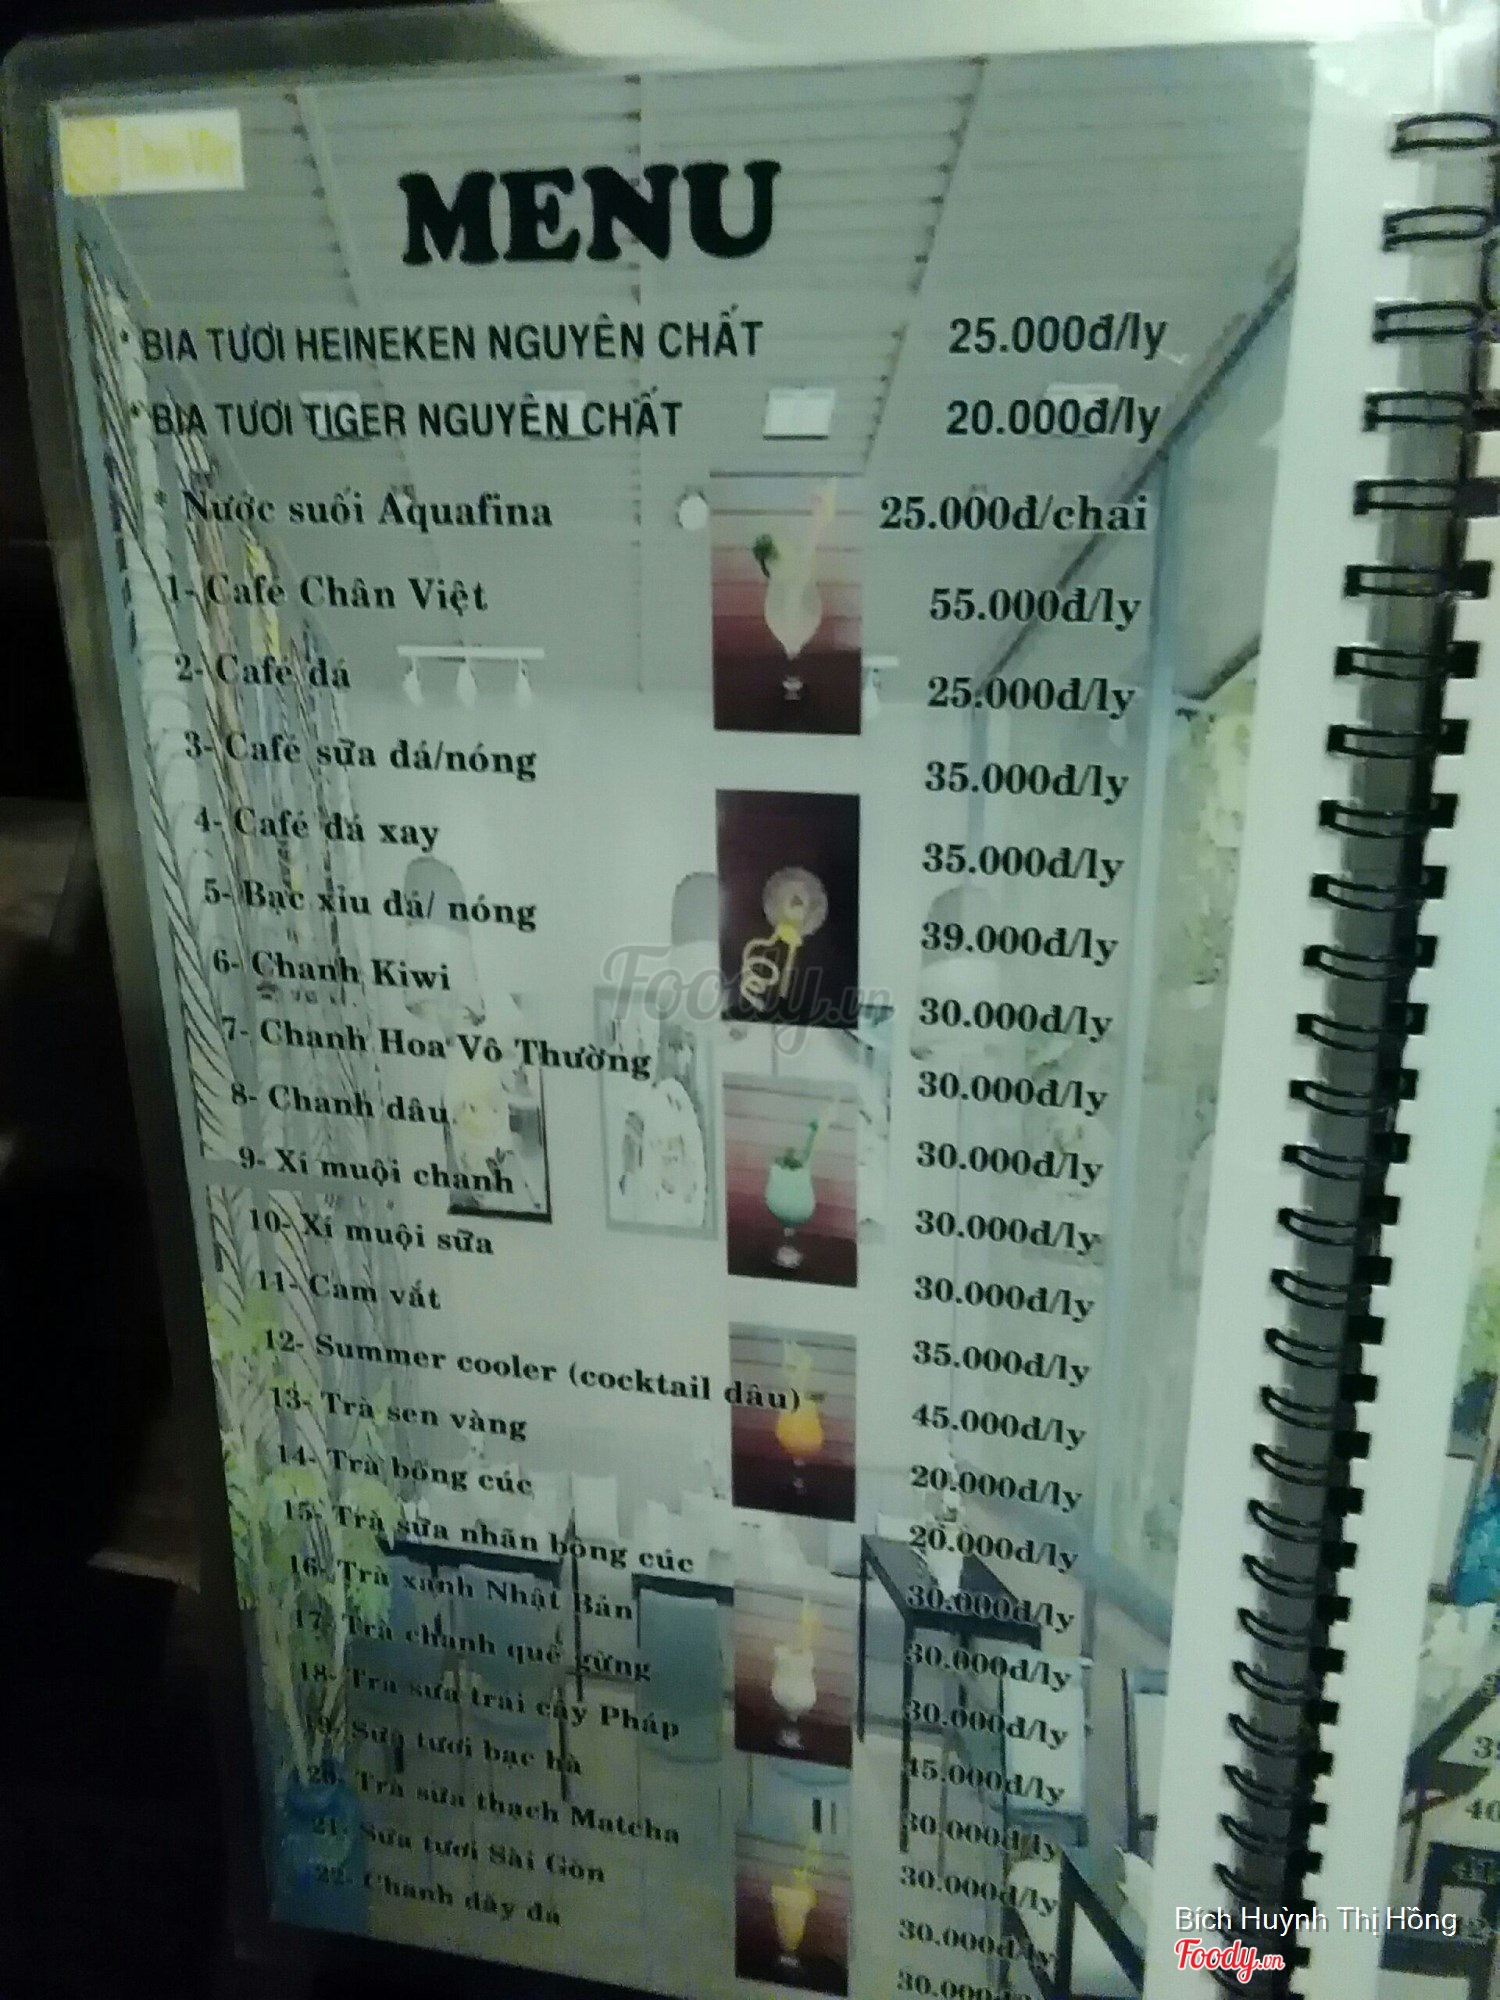 Chân Việt
MENU
* BIA TƯƠI HEINEKEN NGUYÊN CHẤT 25.000đ/ly
* BIA TƯƠI TIGER NGUYÊN CHẤT 20.000đ/ly
* Nước suối Aquafina 25.000đ/chai
1- Café Chân Việt 55.000đ/ly
2- Café đá 25.000đ/ly
3- Café sữa đá/nóng 35.000đ/ly
4- Café đá xay 35.000đ/ly
5- Bạc xỉu đá/ nóng 39.000đ/ly
6- Chanh Kiwi 30.000đ/ly
7- Chanh Hoa Vô Thường 30.000đ/ly
8- Chanh dâu 30.000đ/ly
9- Xí muội chanh 30.000đ/ly
10- Xí muội sữa 30.000đ/ly
11- Cam vắt 35.000đ/ly
12- Summer cooler (cocktail dâu) 45.000đ/ly
13- Trà sen vàng 20.000đ/ly
14- Trà bông cúc 20.000đ/ly
15- Trà sữa nhãn bông cúc 30.000đ/ly
16- Trà xanh Nhật Bản 30.000đ/ly
17- Trà chanh quế gừng 30.000đ/ly
18- Trà sữa trái cây Pháp 45.000đ/ly
19- Sữa tươi bạc hà 30.000đ/ly
20- Trà sữa thạch Matcha 30.000đ/ly
21- Sữa tươi Sài Gòn 30.000đ/ly
22- Chanh dây đá 30.000đ/ly
Foody.vn
Bích Huỳnh Thị Hồng
Foody.vn